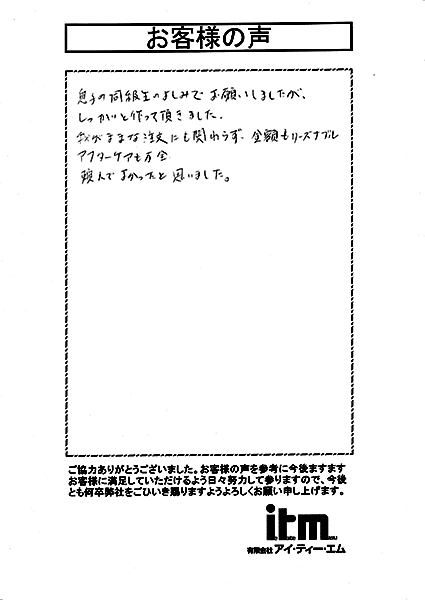 お客様の声
息子の同級生のよしみでお願いしましたが、
しっかりと作って頂きました。
我がままな注文にも関わらず、金額もリーズナブル
アフターケアも万全
頼んでよかったと思いました。
ご協力ありがとうございました。お客様の声を参考に今後ますます
お客様に満足していただけるよう日々努力して参りますので、今後
とも何卒弊社をごひいき賜りますようよろしくお願い申し上げます。
itm
有限会社アイ・ティー・エム